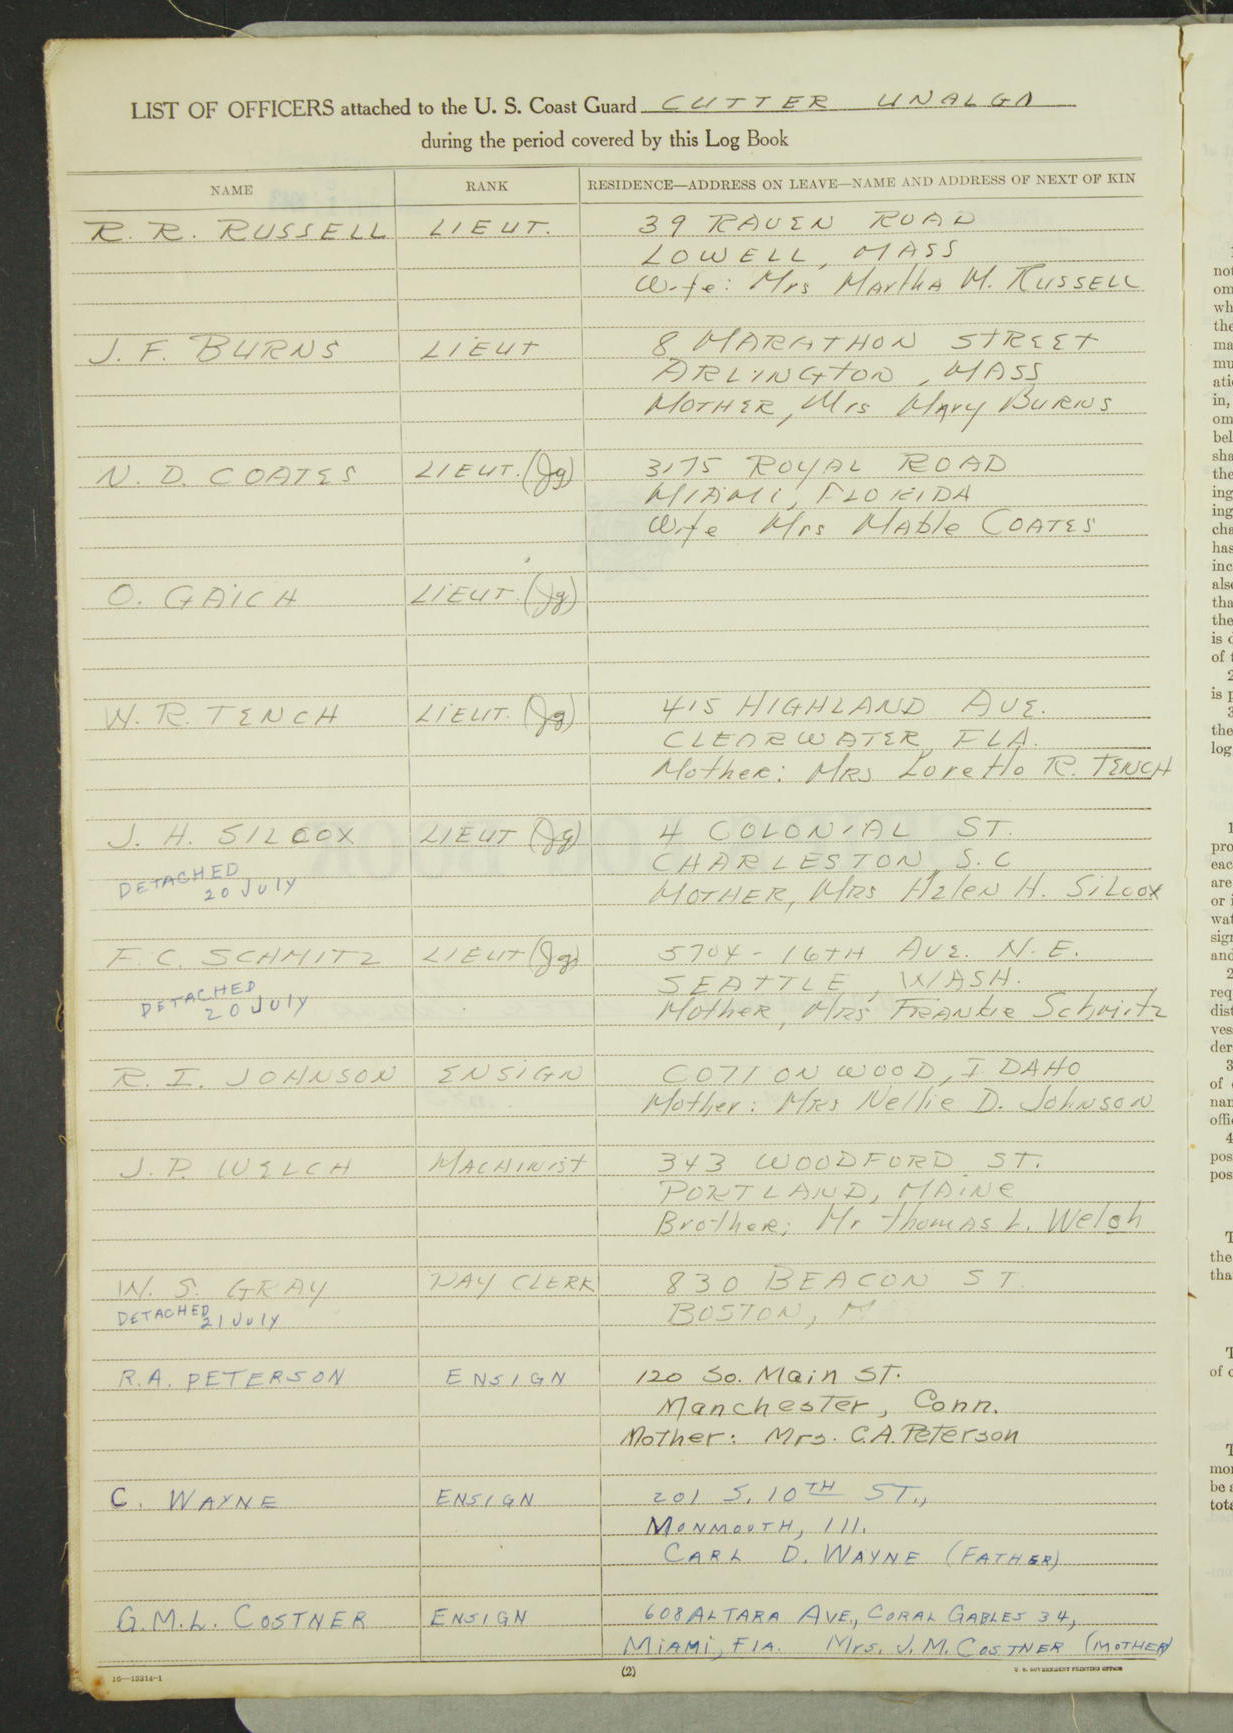 LIST OF OFFICERS attached to the U. S. Coast Guard CUTTER UNALGA
during the period covered by this Log Book
NAME RANK RESIDENCE—ADDRESS ON LEAVE—NAME AND ADDRESS OF NEXT OF KIN
R. R. RUSSELL LIEUT. 39 RAVEN ROAD
LOWELL, MASS
Wife: Mrs MARTHA M. RUSSELL
J. F. BURNS LIEUT 8 MARATHON STREET
ARLINGTON, MASS
MOTHER, Mrs MARY BURNS
N. D. COATES LIEUT. (Jg) 3175 ROYAL ROAD
MIAMI, FLORIDA
Wife Mrs MAble COATES
O. GAICH LIEUT. (Jg)
W. R. TENCH LIEUT. (Jg) 415 HIGHLAND AVE.
CLEARWATER, FLA.
Mother: MRS Loretto R. TENCH
J. H. SILCOX LIEUT (Jg) 4 COLONIAL ST.
CHARLESTON, S.C
DETACHED
20 JULY MOTHER, MRS HELEN H. SILCOX
F. C. SCHMITZ LIEUT (Jg) 5704 - 16TH AVE. N.E.
SEATTLE, WASH.
DETACHED
20 JULY Mother, MRS FRANKIE Schmitz
R. I. JOHNSON ENSIGN COTTONWOOD, IDAHO
Mother: MRS Nellie D. JOHNSON
J. P. WELCH MACHINIST 343 WOODFORD ST.
PORTLAND, MAINE
Brother; Mr thomas L. Welch
W. S. GRAY PAY CLERK 830 BEACON ST.
DETACHED
21 JULY BOSTON, M
R.A. PETERSON ENSIGN 120 So. Main ST.
Manchester, Conn.
Mother: Mrs. C.A. Peterson
C. WAYNE ENSIGN 201 S. 10TH ST.,
MONMOUTH, Ill.
CARL D. WAYNE (FATHER)
G.M.L. COSTNER ENSIGN 608 ALTARA AVE., CORAL GABLES 34,
MIAMI, FlA. MRS. J. M. COSTNER (MOTHER)
16—13314-1 (2) U. S. GOVERNMENT PRINTING OFFICE